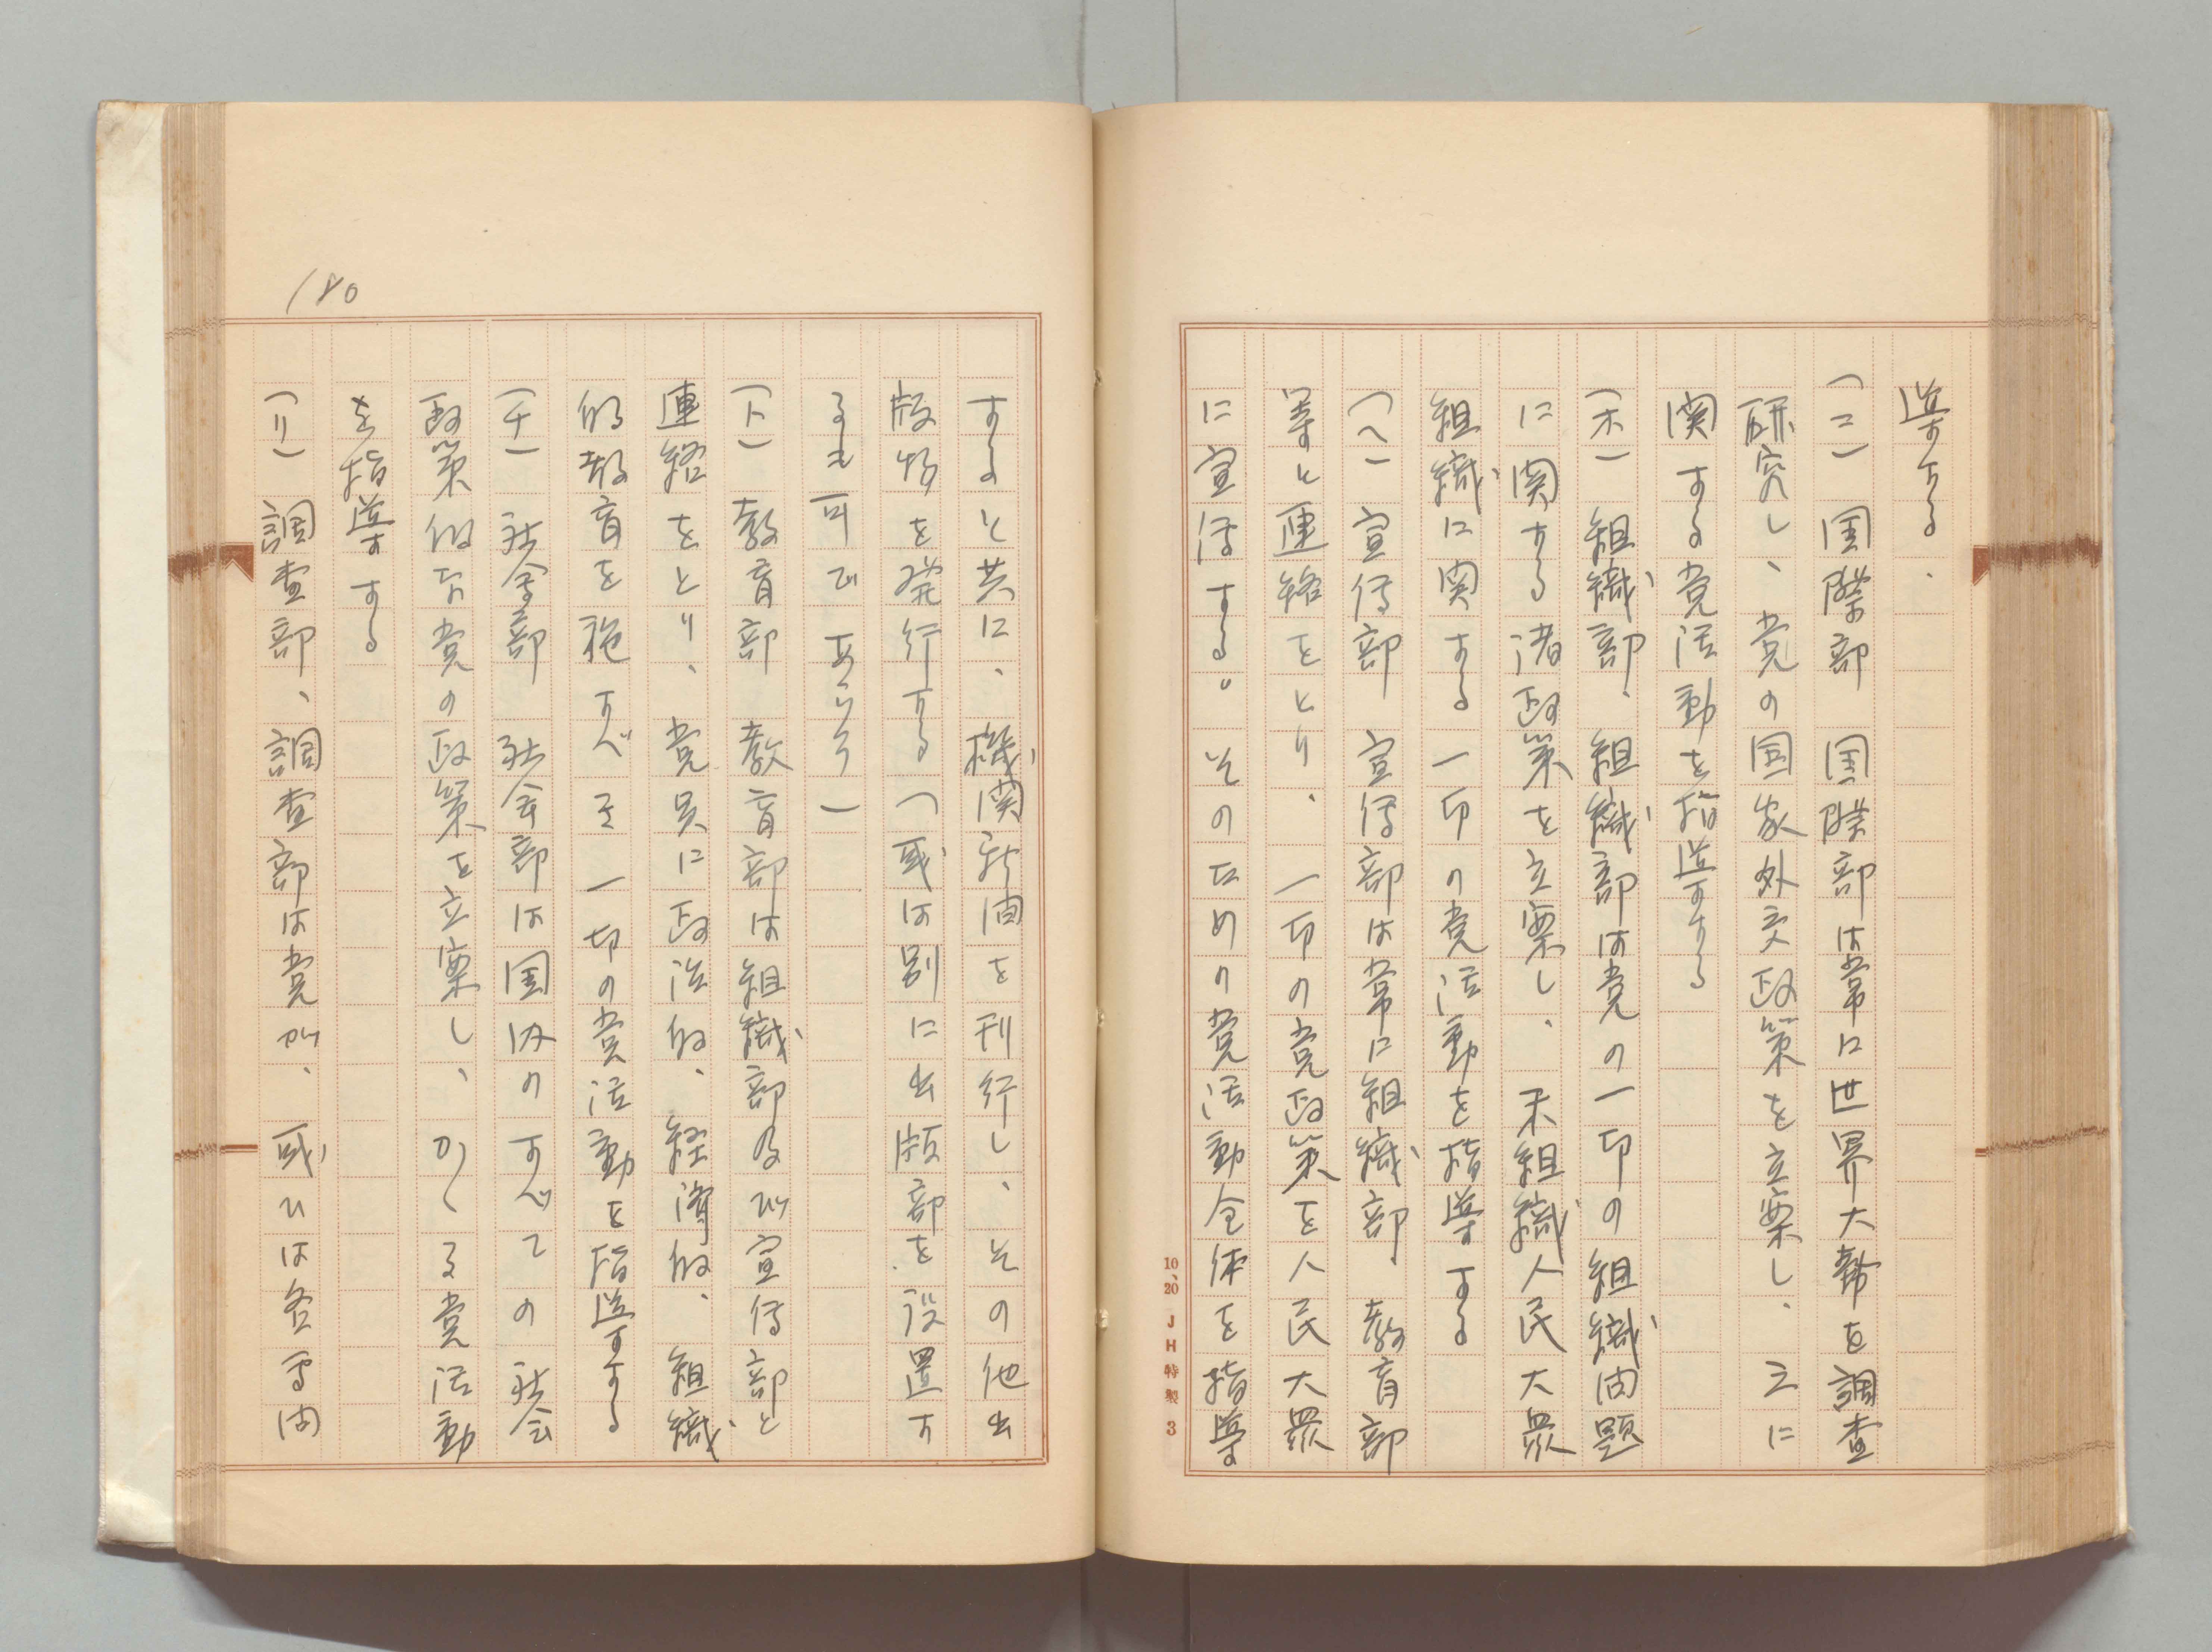 導する、
(ニ) 国際部 国際部は常に世界大勢を調査
研究し、党の国家外交政策を立案し、之に
関する党活動を指導する
(ホ) 組織部、組織部は党の一切の組織問題
に関する諸政策を立案し、未組織人民大衆
組織に関する一切の党活動を指導する
(ヘ) 宣伝部 宣伝部は常に組織部、教育部
等と連絡をとり、一切の党政策を人民大衆
に宣伝する。そのための党活動全体を指導
10、20 JH特製 3
すると共に、機関新聞を刊行し、その他出
版物を発行する(或は別に出版部を設置す
るも可であらう)
(ト) 教育部 教育部は組織部及び宣伝部と
連絡をとり、党員に政治的、経済的、組織
的教育を施すべき一切の党活動を指導する
(チ) 社会部 社会部は国内のすべての社会
政策的な党の政策を立案し、かくる党活動
を指導する
(リ) 調査部、調査部は党が、或ひは各専問
180